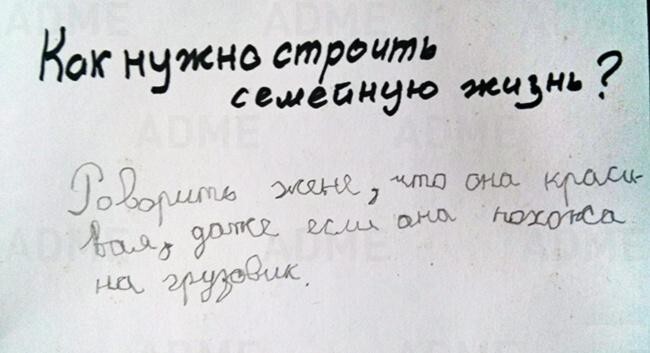 Как нужно строить
семейную жизнь?
Говорить жене, что она краси-
вая, даже если она похожа
на грузовик.
ADME
ADME
ADME
ADME
ADME
ADME